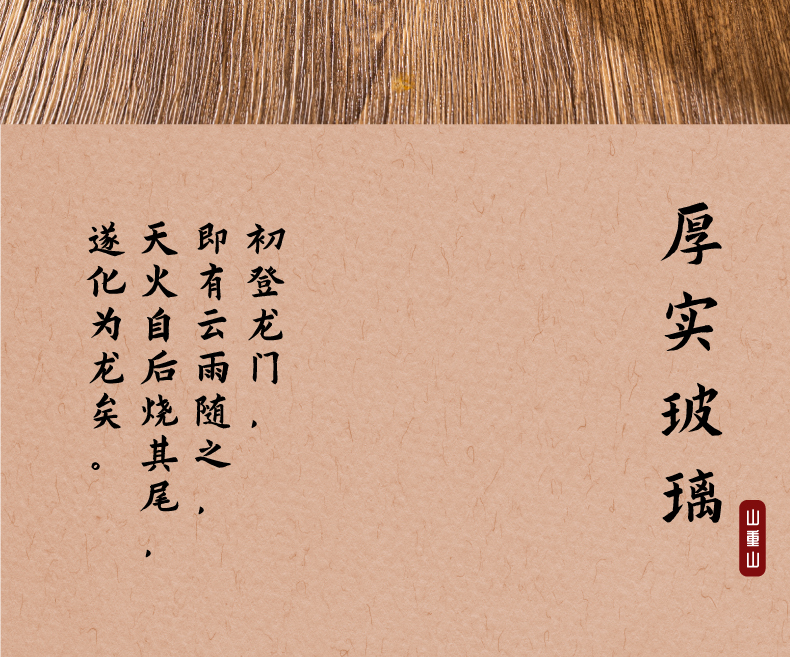 厚实玻璃
山重山
初登龙门，
即有云雨随之，
天火自后烧其尾，
遂化为龙矣。